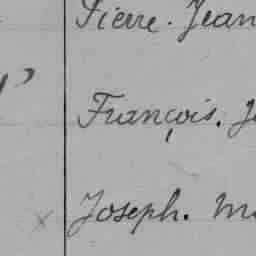 Pierre. Jean
François. J
Joseph. M